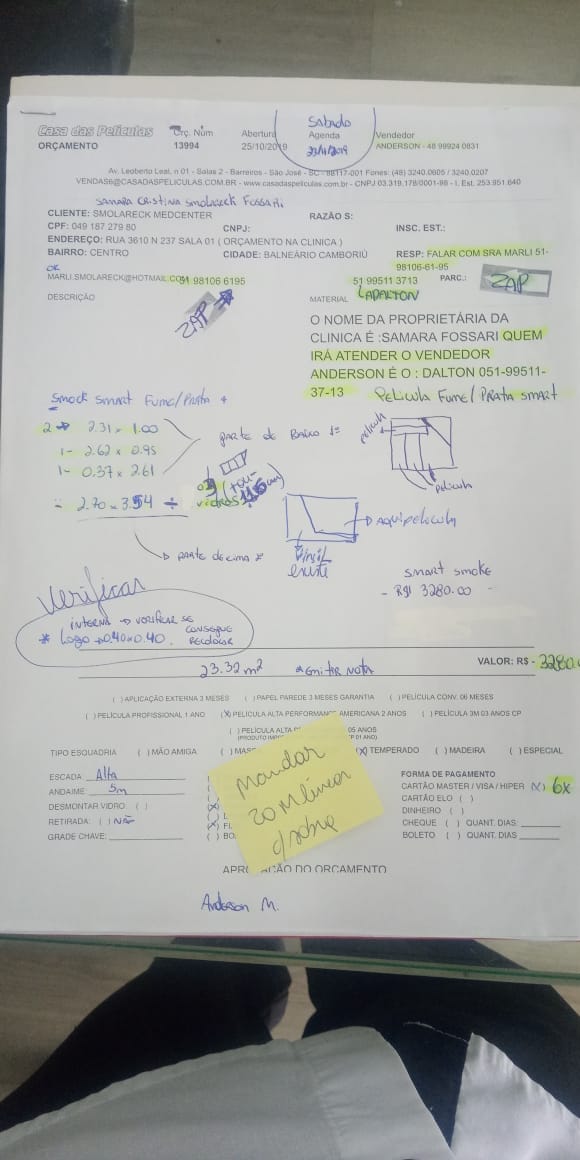 Sabado
Casa das Películas Orç. Núm Abertura Agenda Vendedor
ORÇAMENTO 13994 25/10/2019 23/11/2019 ANDERSON - 48 99924 0831
Av. Leoberto Leal, n 01 - Salas 2 - Barreiros - São José - SC - 88117-001 Fones: (48) 3240.0605 / 3240.0207
VENDAS6@CASADASPELICULAS.COM.BR - www.casadaspeliculas.com.br - CNPJ 03.319.178/0001-98 - I. Est. 253.951.640
SAMARA CRISTINA SMOLARECK FOSSARI
CLIENTE: SMOLARECK MEDCENTER RAZÃO S:
CPF: 049 187 279 80 CNPJ: INSC. EST.:
ENDEREÇO: RUA 3610 N 237 SALA 01 ( ORÇAMENTO NA CLINICA )
BAIRRO: CENTRO CIDADE: BALNEÁRIO CAMBORIÚ RESP: FALAR COM SRA MARLI 51-
98106-61-95
OK
MARLI.SMOLARECK@HOTMAIL.COM 51 98106 6195 51 99511 3713 PARC.: ZAP
DESCRIÇÃO MATERIAL DALTON
ZAP
O NOME DA PROPRIETÁRIA DA
CLINICA É :SAMARA FOSSARI QUEM
IRÁ ATENDER O VENDEDOR
ANDERSON É O : DALTON 051-99511-
37-13 Película Fume/Prata smart
Smock smart Fume/Prata
2 → 2.31 x 1.00
1- 2.62 x 0.95
1- 0.37 x 2.61
parte de Baixo
película
película
2.70 x 3.54 ÷
vidros
parte de cima
Aqui película
Vinil
existe
smart smoke
- R$ 3280.00
Verificar
interna → verificar se
* Logo → 0.40 x 0.40. consegue
recolocar
VALOR: R$ - 3280.
23.32 m² * Emitir Nota
( ) APLICAÇÃO EXTERNA 3 MESES ( ) PAPEL PAREDE 3 MESES GARANTIA ( ) PELÍCULA CONV. 06 MESES
( ) PELÍCULA PROFISSIONAL 1 ANO (X) PELÍCULA ALTA PERFORMANC AMERICANA 2 ANOS ( ) PELÍCULA 3M 03 ANOS CP
( ) PELÍCULA ALTA 05 ANOS
(PRODUTO P 01 ANO)
TIPO ESQUADRIA ( ) MÃO AMIGA ( ) MAS (X) TEMPERADO ( ) MADEIRA ( ) ESPECIAL
Mandar
20 M linear
c/ sobra
ESCADA: Alta
ANDAIME: 5m
DESMONTAR VIDRO ( )
RETIRADA: ( ) NÃO
GRADE CHAVE:
(X)
(X) F
( ) BO
FORMA DE PAGAMENTO
CARTÃO MASTER / VISA / HIPER (X) 6X
CARTÃO ELO ( )
DINHEIRO ( )
CHEQUE ( ) QUANT. DIAS:
BOLETO ( ) QUANT. DIAS
APROVAÇÃO DO ORÇAMENTO
Anderson M.